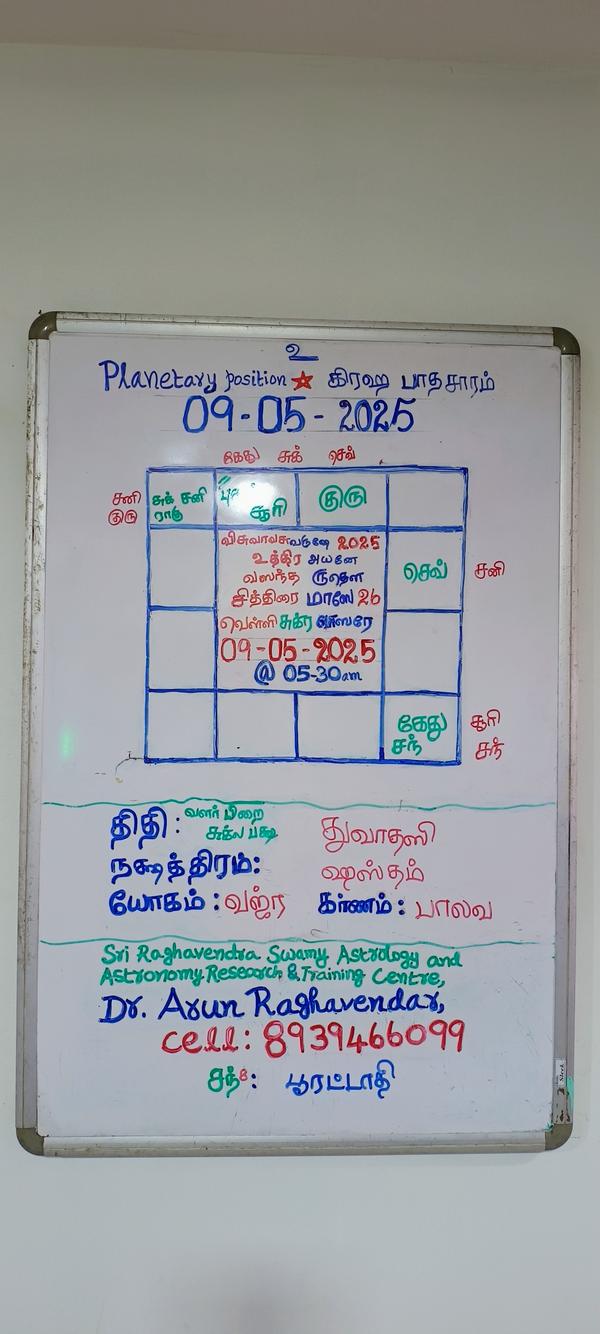 உ
Planetary position கிரஹ பாதசாரம்
09-05-2025
கேது சுக் செவ்
சனி
குரு
சுக் சனி
ராகு
சூரி
குரு
விசுவாவசுவருஷே 2025
உத்திர அயனே
வஸந்த ருதௌ
சித்திரை மாஸே 26
வெள்ளி சுக்ர வாஸரே
09-05-2025
@ 05-30am
செவ்
சனி
கேது
சந்
சூரி
சந்
திதி: வளர் பிறை
சுக்ல பக்ஷ
துவாதஸி
நக்ஷத்திரம்: ஹஸ்தம்
யோகம்: வஜ்ர கர்ணம்: பாலவ
Sri Raghavendra Swamy Astrology and
Astronomy Research & Training Centre,
Dr. Arun Raghavendar,
cell: 8939466099
சந் 8: பூரட்டாதி